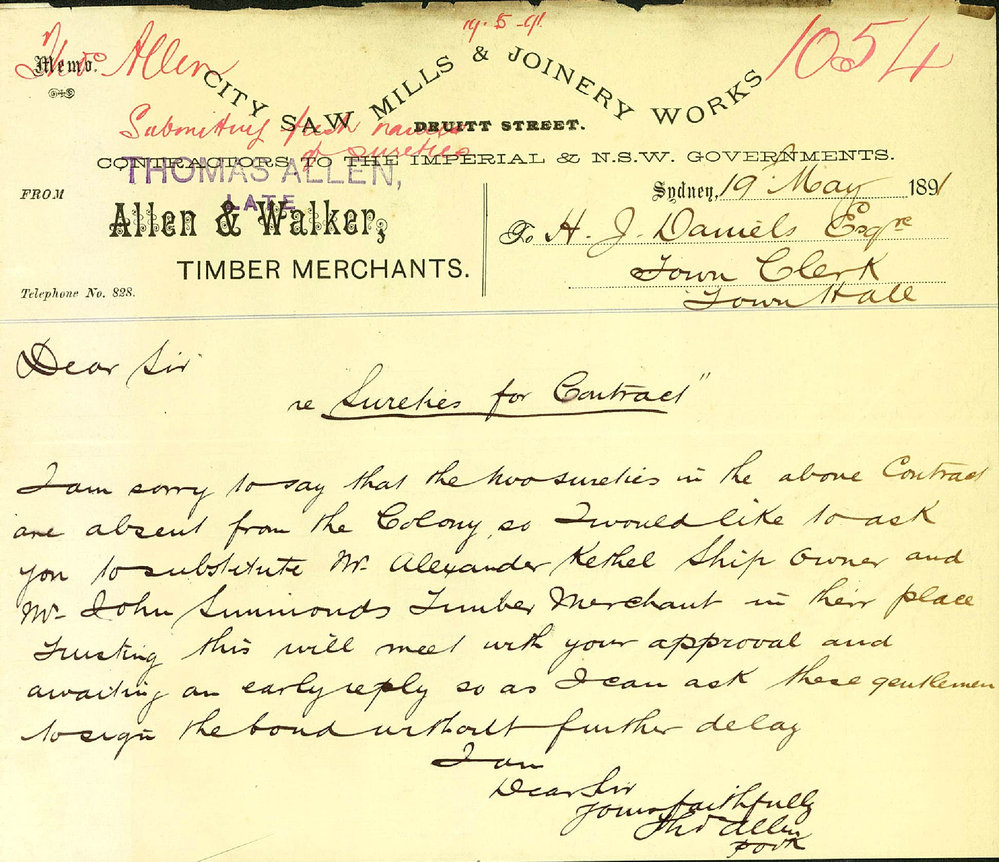 19.5.91
Thos Allen
1054
Memo.
CITY SAW MILLS & JOINERY WORKS
Submitting fresh names
of sureties
DRUITT STREET.
CONTRACTORS TO THE IMPERIAL & N.S.W. GOVERNMENTS.
THOMAS ALLEN,
LATE
FROM
Allen & Walker,
TIMBER MERCHANTS.
Telephone No. 828.
Sydney, 19 May 1891
To H. J. Daniels Esqre
Town Clerk
Town Hall
Dear Sir
re Sureties for Contract"
I am sorry to say that the two sureties in the above Contract
are absent from the Colony, so I would like to ask
you to substitute Mr. Alexander Kethel Ship Owner and
Mr John Simmonds Timber Merchant in their place
Trusting this will meet with your approval and
awaiting an early reply so as I can ask these gentlemen
to sign the bond without further delay
I am
Dear Sir
Yours faithfully
Thos Allen